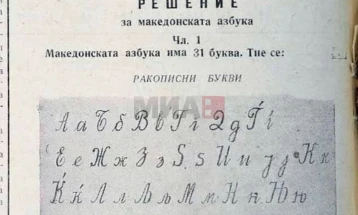 РЕШЕНИЕ
за македонската азбука
Чл. 1
Македонската азбука има 31 буква. Тие се:
РАКОПИСНИ БУКВИ
МИА
Аа Бб Вв Гг Дд Ѓѓ
Ее Жж Зз Ѕѕ Ии Јј Кк
Ќќ Лл Љљ Мм Нн Њњ